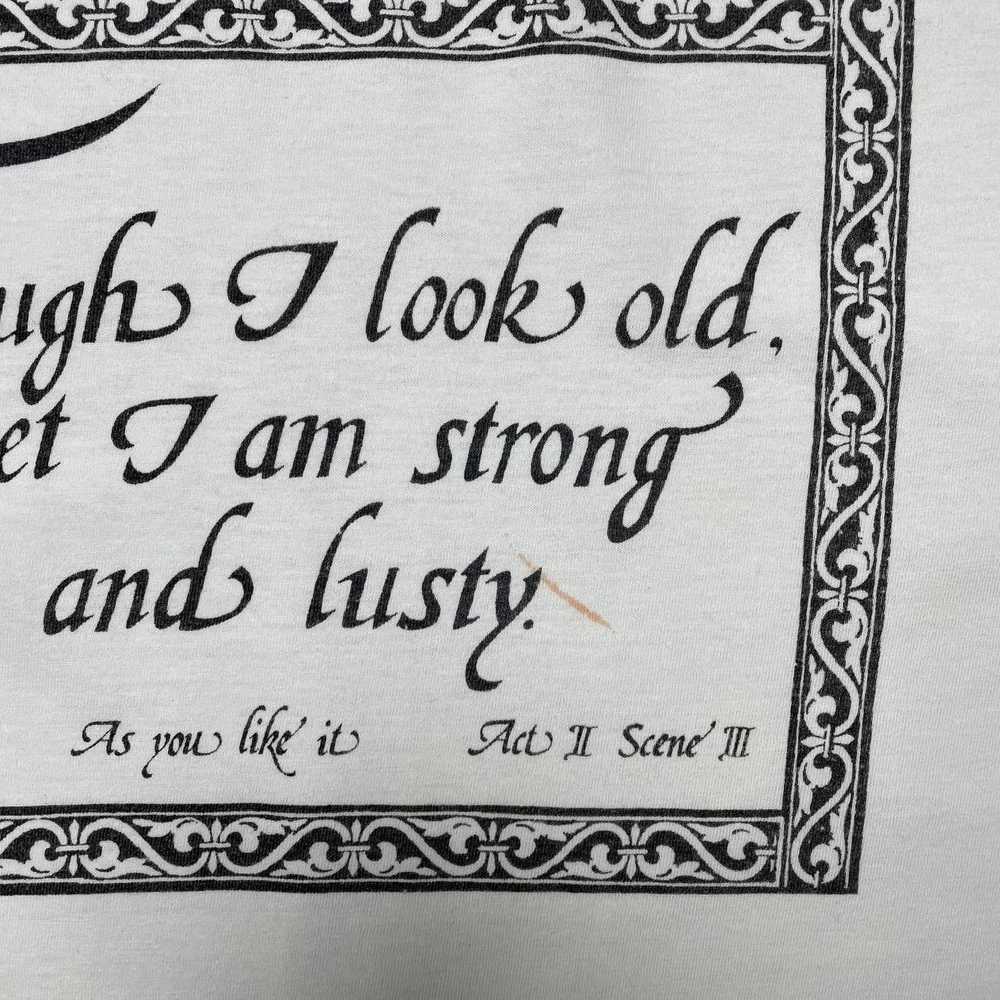 ugh I look old,
et I am strong
and lusty.
As you like it Act II Scene III